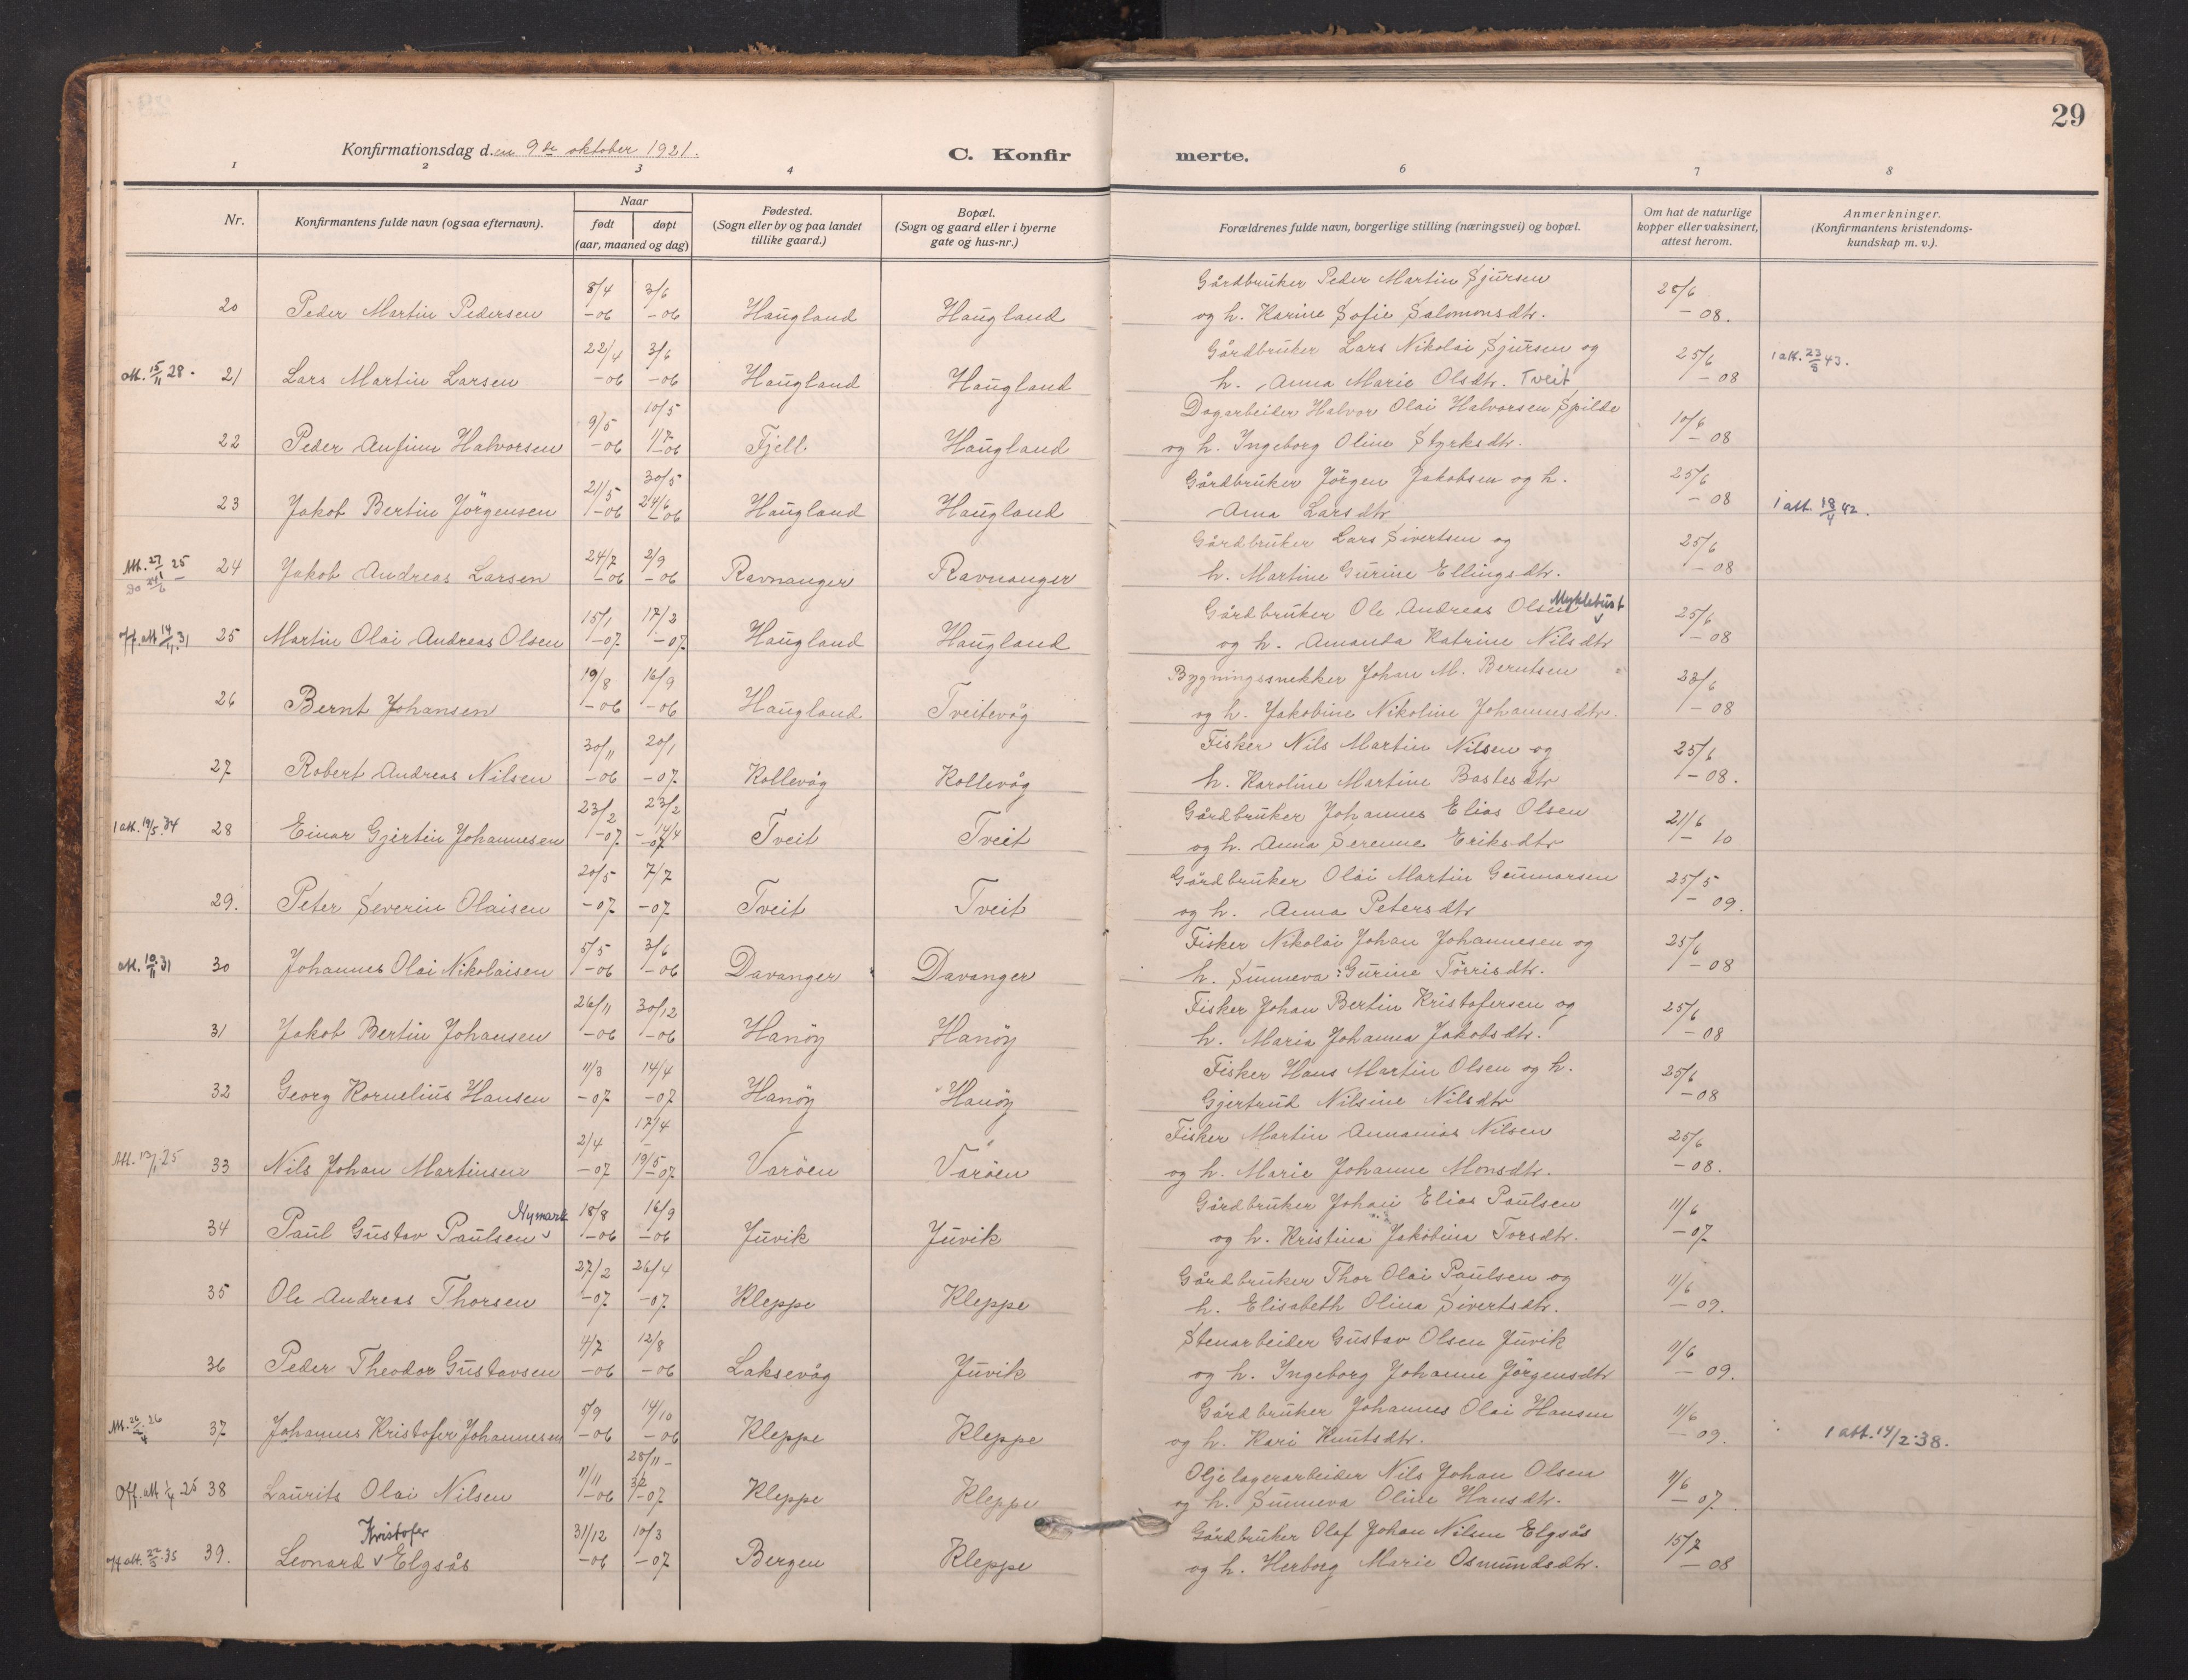 29
Konfirmationsdag d. en 9de oktober 1921.
C. Konfirmerte.
1 2 3 4 6 7 8
Nr.
Konfirmantens fulde navn (ogsaa efternavn).
Naar
født døpt
(aar, maaned og dag)
Fødested.
(Sogn eller by og paa landet
tillike gaard.)
Bopæl.
(Sogn og gaard eller i byerne
gate og hus-nr.)
Forældrenes fulde navn, borgerlige stilling (næringsvei) og bopæl.
Om hat de naturlige
kopper eller vaksinert,
attest herom.
Anmerkninger.
(Konfirmantens kristendoms-
kundskap m. v.).
20 Peder Martin Pedersen 8/4 –06 3/6 –06 Haugland Haugland
Gårdbruker Peder Martin Sjursen
og h. Karine Sofie Salomonsdtr. 25/6 – 08.
att. 15/11 28. 21 Lars Martin Larsen 22/4 –06 3/6 –06 Haugland Haugland
Gårdbruker Lars Nikolai Sjursen og
h. Anna Marie Olsdtr. Tveit 25/6 – 08 1 att. 23/8 43.
22 Peder Anfinn Halvorsen 9/5 –06 10/5 1/7 –06 Fjell Haugland
Dagarbeider Halvor Olai Halvorsen Spilde
og h. Ingeborg Oline Styrksdtr. 10/6 – 08
23 Jakob Bertin Jörgensen 21/5 –06 30/5 24/6 –06 Haugland Haugland
Gårdbruker Jörgen Jakobsen og h.
Anna Larsdtr 25/6 – 08 1 att. 18/4 42.
Att. 27/1 25 24 Jakob Andreas Larsen 24/7 –06 2/9 –06 Ravnanger Ravnanger
Gårdbruker Lars Sivertsen og
h. Martine Gurine Ellingsdtr. 25/6 – 08
Off. att 14/11 31 25 Martin Olai Andreas Olsen 15/1 –07 17/3 –07 Haugland Haugland
Gårdbruker Ole Andreas Olsen Myklebust
og h. Amanda Katrine Nilsdtr 25/6 – 08
26 Bernt Johansen 19/8 –06 16/9 –06 Haugland Tveitevåg
Bygningssnekker Johan M. Berntsen
og h. Jakobine Nikoline Johannesdtr. 23/6 – 08
27 Robert Andreas Nilsen 30/11 –06 20/1 –07 Kollevåg Kollevåg
Fisker Nils Martin Nilsen og
h. Karoline Martine Bastesdtr 25/6 – 08.
1 att. 19/5.34 28 Einar Gjertin Johannesen 23/2 –07 23/2 – 14/4 –07 Tveit Tveit
Gårdbruker Johannes Elias Olsen
og h. Anna Serenne Eriksdtr 21/6 – 10
29. Peter Severin Olaisen 20/5 –07 7/7 –07 Tveit Tveit
Gårdbruker Olai Martin Gunnarsen
og h. Anna Petersdtr 25/5 – 09.
att. 10/11 31 30 Johannes Olai Nikolaisen 5/5 –06 3/6 –06 Davanger Davanger
Fisker Nikolai Johan Johannesen og
h. Sunneva Gurine Törrisdtr. 25/6 – 08
31 Jakob Bertin Johansen 26/11 –06 30/12 –06 Hanöy Hanöy
Fisker Johan Bertin Kristofersen og
h. Maria Johanna Jakobsdtr. 25/6 – 08
32 Georg Kornelius Hansen 11/3 –07 14/4 –07 Hanöy Hanöy
Fisker Hans Martin Olsen og h.
Gjertrud Nilsine Nilsdtr 25/6 – 08
Att. 13/1.25 33 Nils Johan Martinsen 2/4 –07 17/4 – 19/5 –07 Varöen Varöen
Fisker Martin Annanias Nilsen
og h. Marie Johanne Monsdtr. 25/6 – 08.
34 Paul Gustav Paulsen Nymark 18/8 –06 16/9 –06 Juvik Juvik
Gårdbruker Johan Elias Paulsen
og h. Kristina Jakobina Torsdtr. 11/6 – 07
35 Ole Andreas Thorsen 27/2 –07 26/4 –07 Kleppe Kleppe
Gårdbruker Thor Olai Paulsen og
h. Elisabeth Olina Sivertsdtr. 11/6 – 09.
36 Peder Theodor Gustavsen 4/7 –06 12/8 –06 Laksevåg Juvik
Stenarbeider Gustav Olsen Juvik
og h. Ingeborg Johanne Jörgensdtr 11/6 – 09.
Att. 26/4 26 37 Johannes Kristofer Johannesen 5/9 –06 14/10 –06 Kleppe Kleppe
Gårdbruker Johannes Olai Hansen
og h. Kari Knutsdtr. 11/6 – 09. 1 att. 14/2.38.
Off. att 1/4 25 38 Laurits Olai Nilsen 11/11 –06 28/11 – –07 Kleppe Kleppe
Oljelagerarbeider Nils Johan Olsen
og h. Sunneva Oline Hansdtr. 11/6 – 07.
off att. 22/5 35 39. Leonard Kristofer Elgsås 31/12 –06 10/3 –07 Bergen Kleppe
Gårdbruker Olaf Johan Nilsen Elgsås
og h. Herborg Marie Osmundsdtr. 15/7 – 08